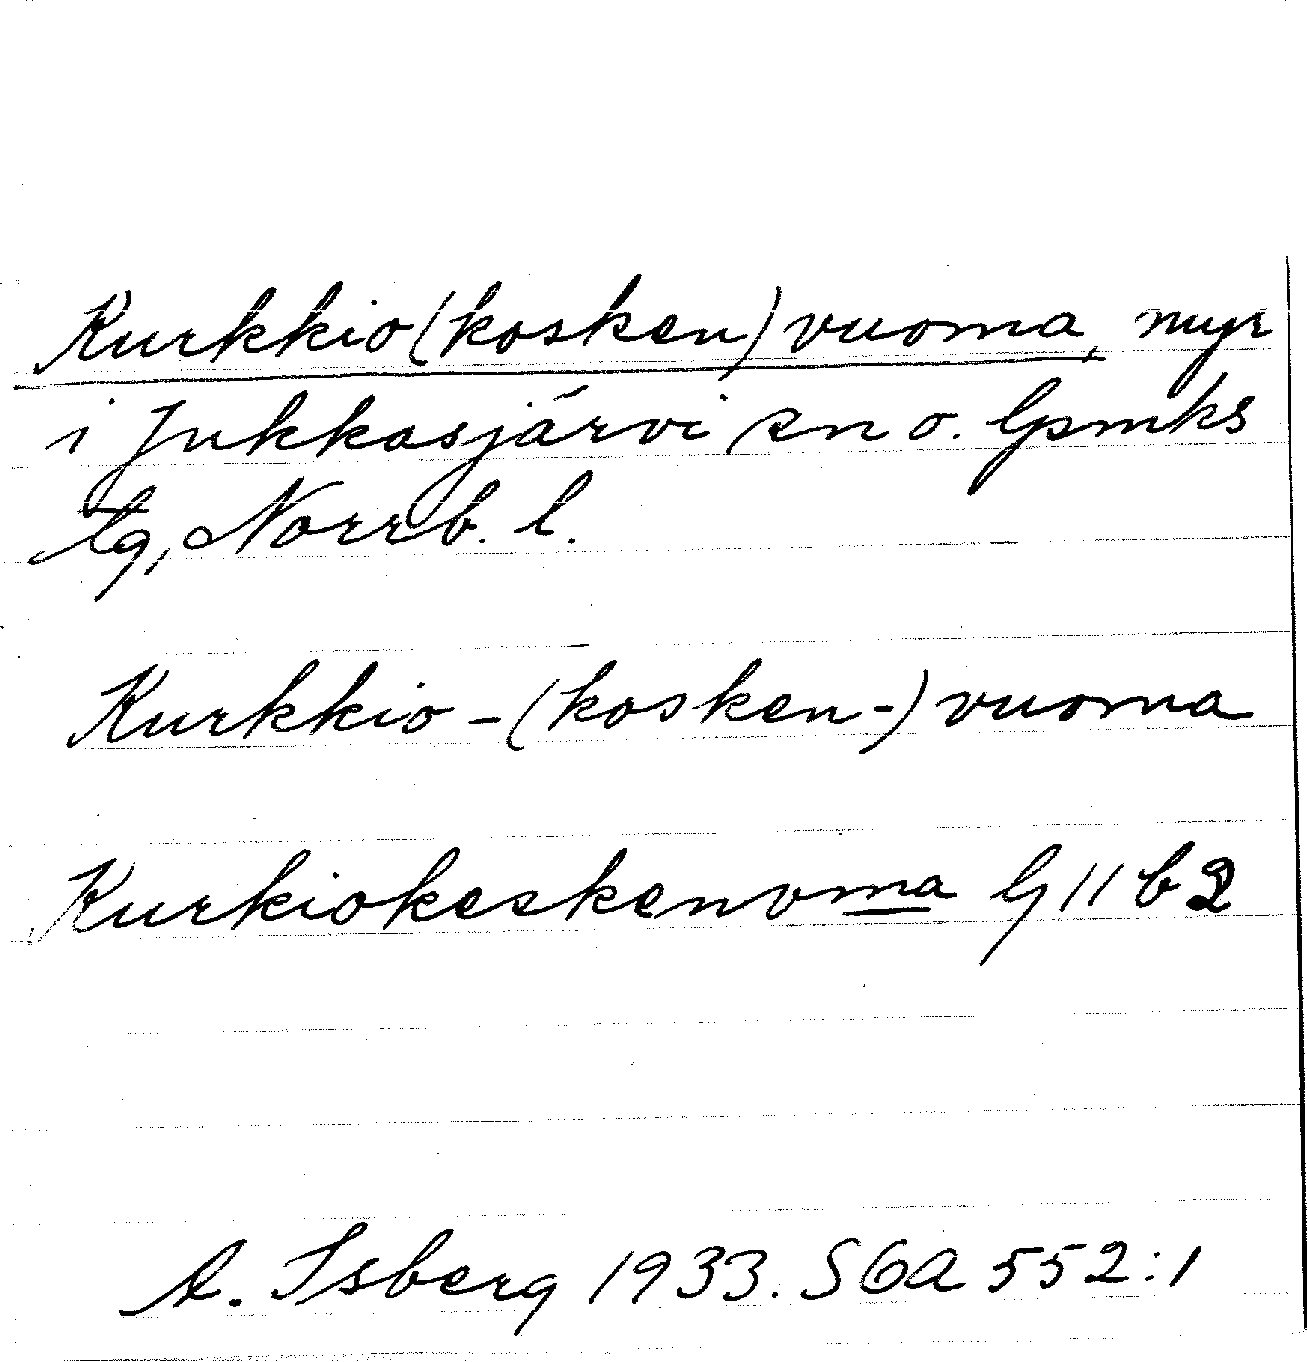 Kurkkio(kosken)vuoma, myr
i Jukkasjärvi sn o. lpmks
tg, Norrb. l.
Kurkkio-(kosken-)vuoma
Kurkiokeskenvma G 11 b 2
A. Isberg 1933. SGA 552:1